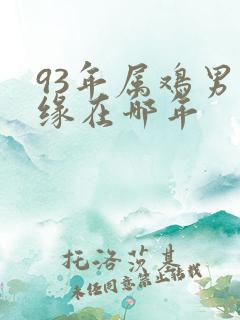 93年属鸡男
缘在哪年
托洛莎基
未经同意禁止转载